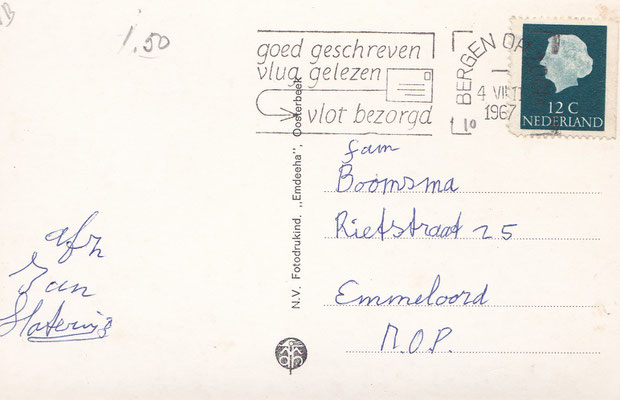 1.50
goed geschreven
vlug gelezen
vlot bezorgd
BERGEN OP
4 VII
1967
10
12 C
NEDERLAND
N.V. Fotodrukind. „Emdeeha”, Oosterbeek
fam
Boomsma
Rietstraat 25
Emmeloord
N.O.P.
afz
Jan